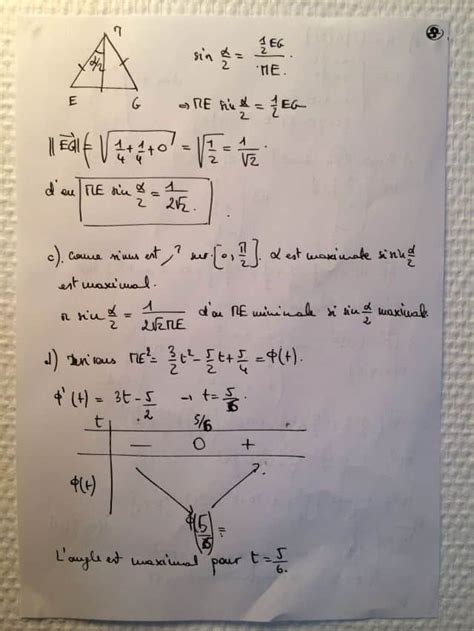 M
α/2
E G
sin α/2 = ½EG / ME.
⇒ ME sin α/2 = ½ EG
||EG|| = √(1/4 + 1/4 + 0) = √(1/2) = 1/√2.
d'où ME sin α/2 = 1/(2√2).
c). Comme sinus est ↗ sur [0, π/2]. α est maximale si sin α/2
est maximal.
or sin α/2 = 1/(2√2 ME) d'où ME minimale si sin α/2 maximale
d) ME² = 3/2 t² - 5/2 t + 5/4 = φ(t).
φ'(t) = 3t - 5/2 → t = 5/6.
t 5/6
— 0 +
φ(t)
φ(5/6) =
L'angle est maximal pour t = 5/6.